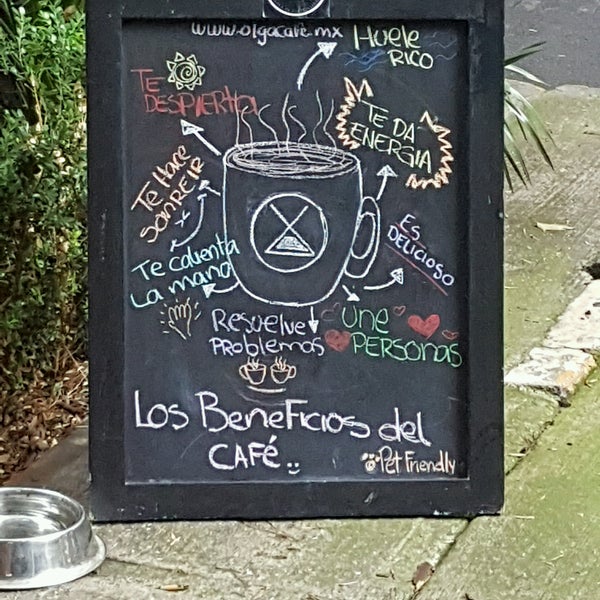 www.olgacafe.mx
Huele
RICO
TE
DESPIERTA
TE DA
ENERGIA
Te Hace
SONREIR
ES
DELICIOSO
Te calienta
La mano
Resuelve
PROBLEMAS
UNE
PERSONAS
Los BeneFicios del
CAFÉ
Pet Friendly